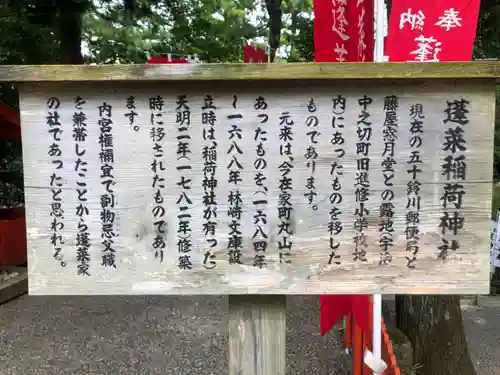 蓬莱稲荷神社
現在の五十鈴川郵便局と
藤屋窓月堂との露地
中之切町旧進修小学校地
内にあったものを移した
ものであります。
元来は、今在家町丸山に
あったものを、（一六八四年
〜一六八八年 林崎文庫設
立時は、稲荷神社が有った）
天明二年（一七八二年修築
時に移されたものであり
ます。
内宮権禰宜で刻物忌父職
を兼帯したことから蓬莱家
の社であったと思われる。
奉
納
蓬
蓬
莱